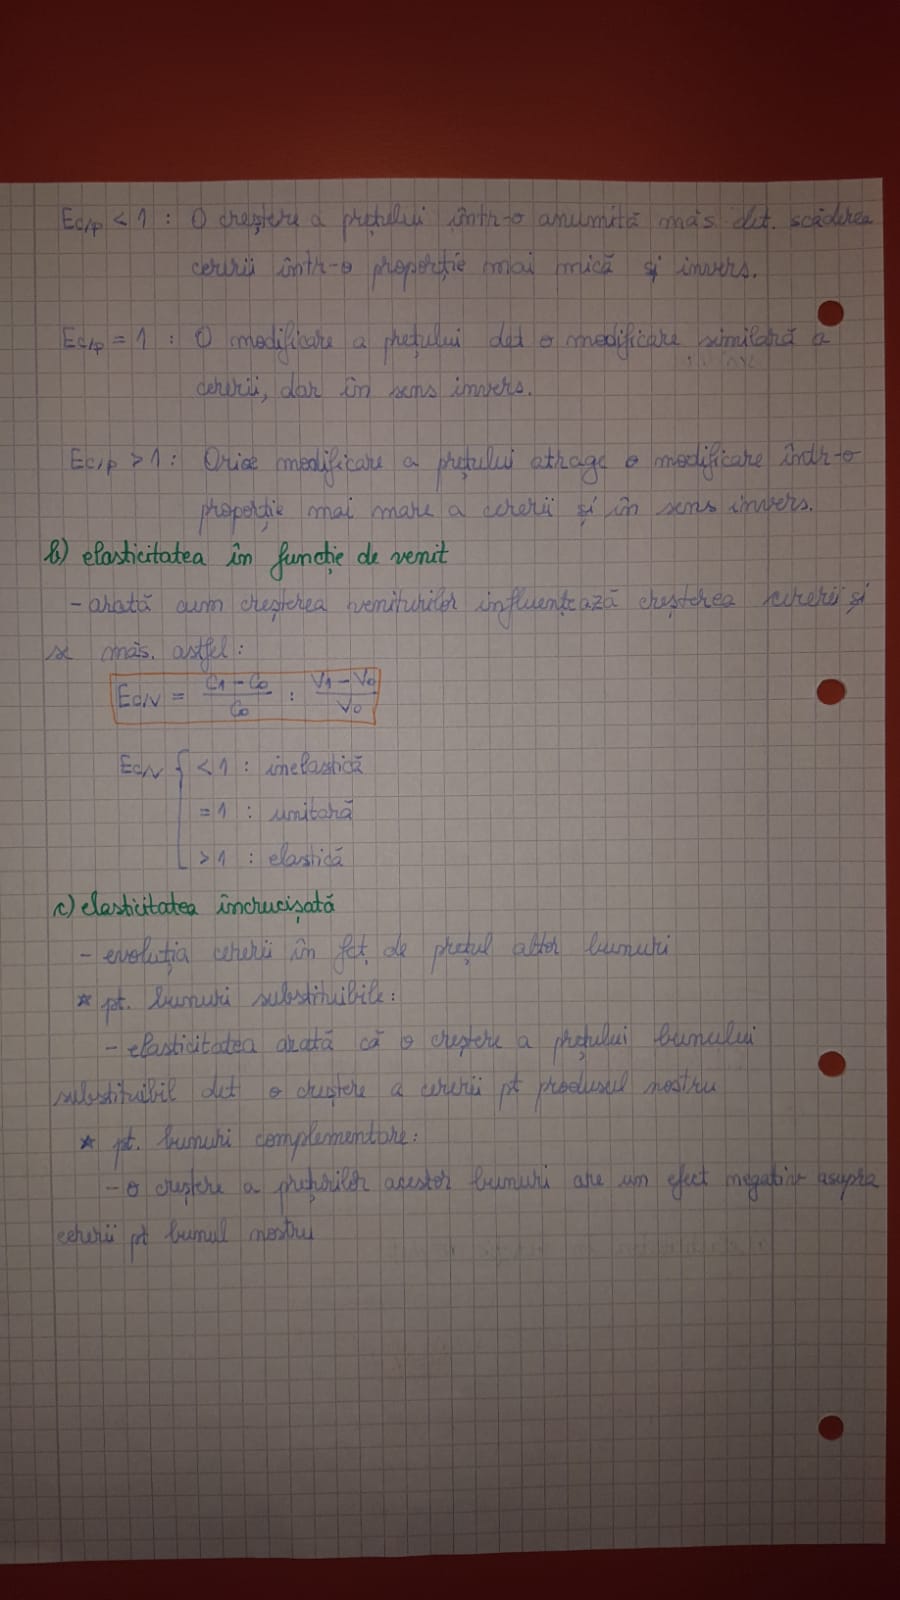 Ec/p < 1 : O creștere a prețului într-o anumită măs. det. scăderea
cererii într-o proporție mai mică și invers.
Ec/p = 1 : O modificare a prețului det o modificare similară a
cererii, dar în sens invers.
Ec/p > 1 : Orice modificare a prețului atrage o modificare într-o
proporție mai mare a cererii și în sens invers.
b) elasticitatea în funcție de venit
- arată cum creșterea veniturilor influențează creșterea cererii și
măs. astfel :
Ec/v = C1 - C0 / C0 : V1 - V0 / V0
Ec/v { < 1 : inelastică
= 1 : unitară
> 1 : elastică
c) elasticitatea încrucișată
- evoluția cererii în fcț de prețul altor bunuri
* pt. bunuri substituibile :
- elasticitatea arată că o creștere a prețului bunului
substituibil det o creștere a cererii pt produsul nostru
* pt. bunuri complementare :
- o creștere a prețurilor acestor bunuri are un efect negativ asupra
cererii pt bunul nostru